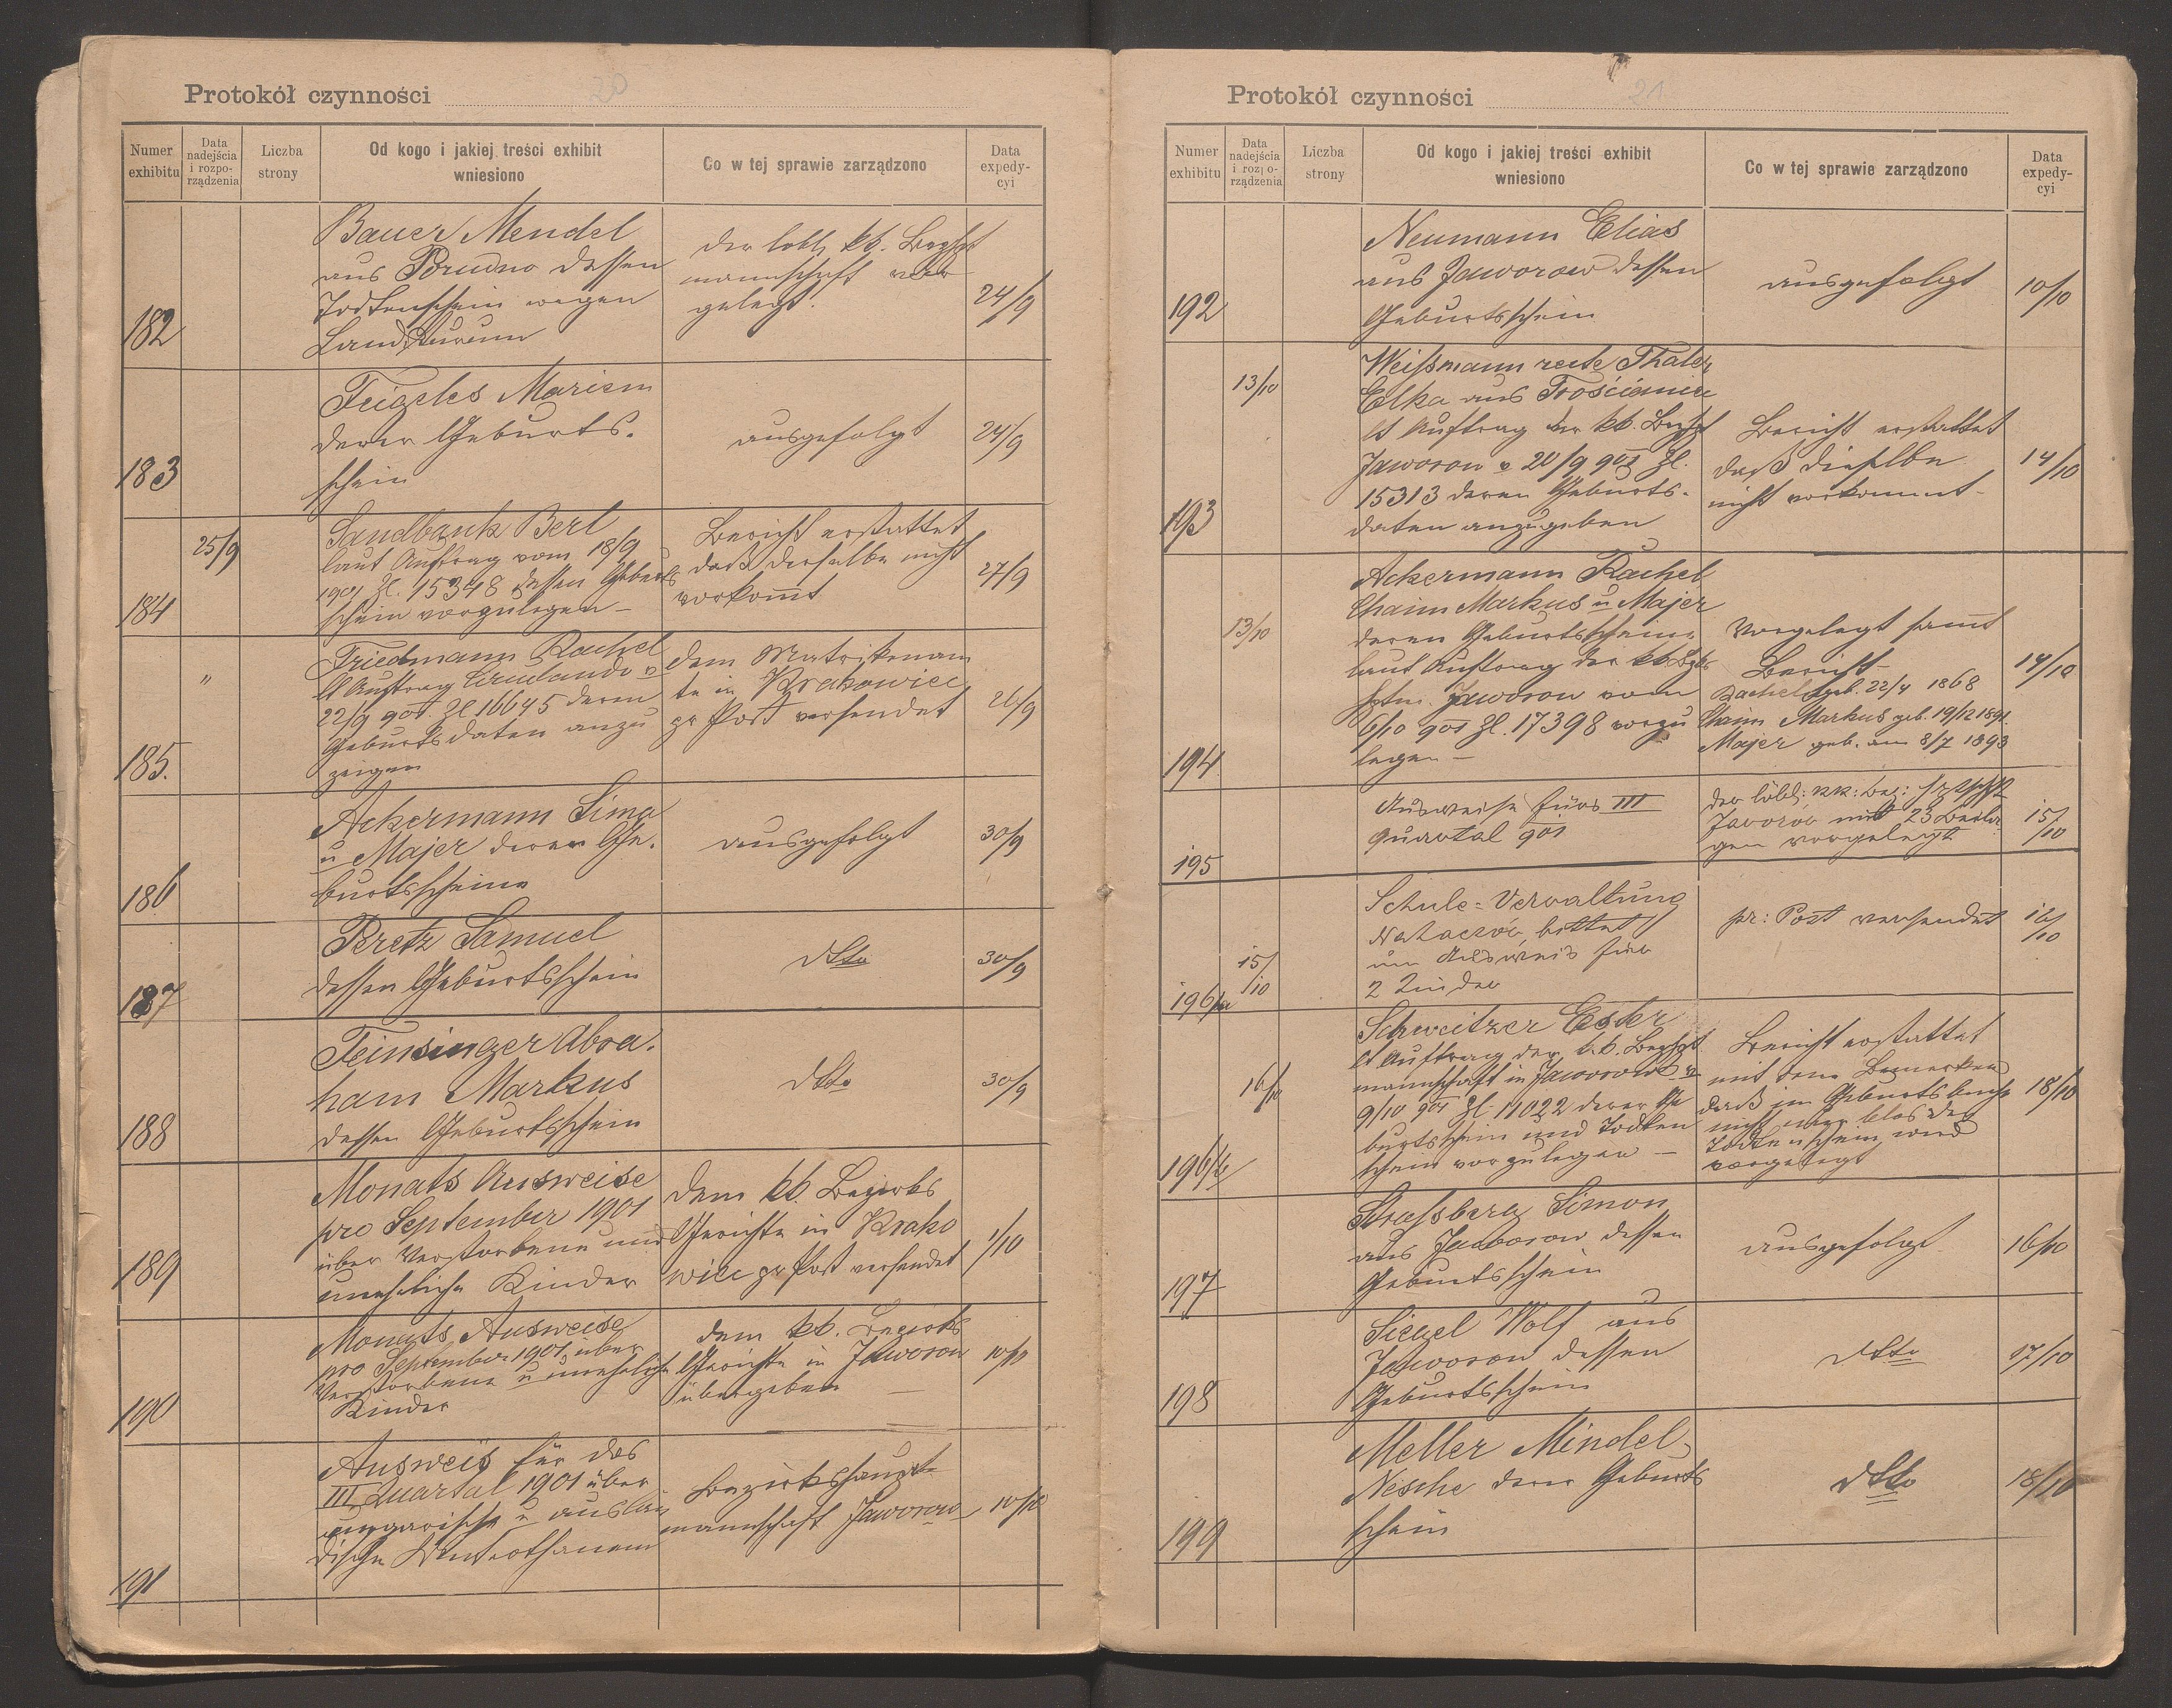 Protokół czynności 20
Numer exhibitu
Data nadejścia i rozporządzenia
Liczba strony
Od kogo i jakiej treści exhibit wniesiono
Co w tej sprawie zarządzono
Data expedycyi
182
Bauer Mendel
aus Bruchno dessen
Todtenschein wegen
Landsturum
der löbl. kk. Bezhpt
mannschaft vor
gelegt.
24/9
183
Feigeles Mariem
deren Geburts-
schein
ausgefolgt
24/9
184
25/9
Sandbank Berl
laut Auftrag vom 18/9
1901 Zl. 15348 dessen Geburts
schein vorzulegen –
Bericht erstattet
daß derselbe nicht
vorkomt
27/9
185.
"
Friedmann Rachel
lt Auftrag Circulando v
22/9 901. Zl 16645 deren
Geburtsdaten anzu
zeigen
dem Matrikenam
te in Krakowiec
pr Post versendet
26/9
186
Ackermann Sima
u Majer deren Ge-
burtsscheine
ausgefolgt
30/9
187
Peretz Samuel
dessen Geburtsschein
dtto
30/9
188
Feinsinger Abra-
ham Markus
dessen Geburtsschein
dtto
30/9
189
Monats Ausweise
pro September 1901
über Verstorbene und
uneheliche Kinder
dem kk Bezirks
Gerichte in Krako
wiec pr Post versendet
1/10
190
Monats Ausweise
pro September 1901 über
Verstorbene u uneheliche
Kinder
dem kk. Bezirks
Gerichte in Jaworow
übergeben –
10/10
191
Ausweis für das
III Quartal 1901 über
ungarische u auslän
dische Unterthanen
Bezirkshaupt-
mannschaft Jaworow
10/10
Protokół czynności 21
Numer exhibitu
Data nadejścia i rozporządzenia
Liczba strony
Od kogo i jakiej treści exhibit wniesiono
Co w tej sprawie zarządzono
Data expedycyi
192
Neumann Elias
aus Jaworow dessen
Geburtsschein
ausgefolgt
10/10
193
13/10
Weißmann recte Thaler
Elka aus Trościaniec
lt Auftrag der kk. Bezhpt
Jaworow v 20/9 901 Zl.
15313 deren Geburts-
daten anzugeben
Bericht erstattet
daß dieselbe
nicht vorkommt –
14/10
194
13/10
Ackermann Rachel
Chaim Markus u Majer
deren Geburtsscheine
laut Auftrag der kk
Jaworow vom
6/10 901 Zl. 17398 vorzu
legen –
Vorgelegt samt
Bericht
Rachel geb. 22/4 1868
Chaim Markus geb. 19/12 1891
Majer geb. am 8/7 1893
14/10
195
Ausweise fürs III
Quartal 901
der löbl: kk: Bez:
Jaworów mit 23 Beila
gen vorgelegt
15/10
196/a
15/10
Schule-Verwaltung
Nahaczów bittet
um Ausweis für
2 Kinder
pr: Post versendet
16/10
196/b
16/10
Schweitzer Ester
lt Auftrag der k.k. Bezhpt
mannschaft in Jaworow v
9/10 901 Zl 11022 deren Ge
burtsschein und Todten
schein vorzulegen –
Bericht erstattet
mit dem Bemerken
daß im Geburtsbuche
nicht blos der
Todtenschein wird
vorgelegt
18/10
197
Strassberg Simon
aus Jaworow dessen
Geburtsschein
ausgefolgt
16/10
198
Siegel Wolf aus
Jaworow dessen
Geburtsschein
dtto
17/10
199
Meller Mindel
Nesche deren Geburts
schein
dtto
18/10